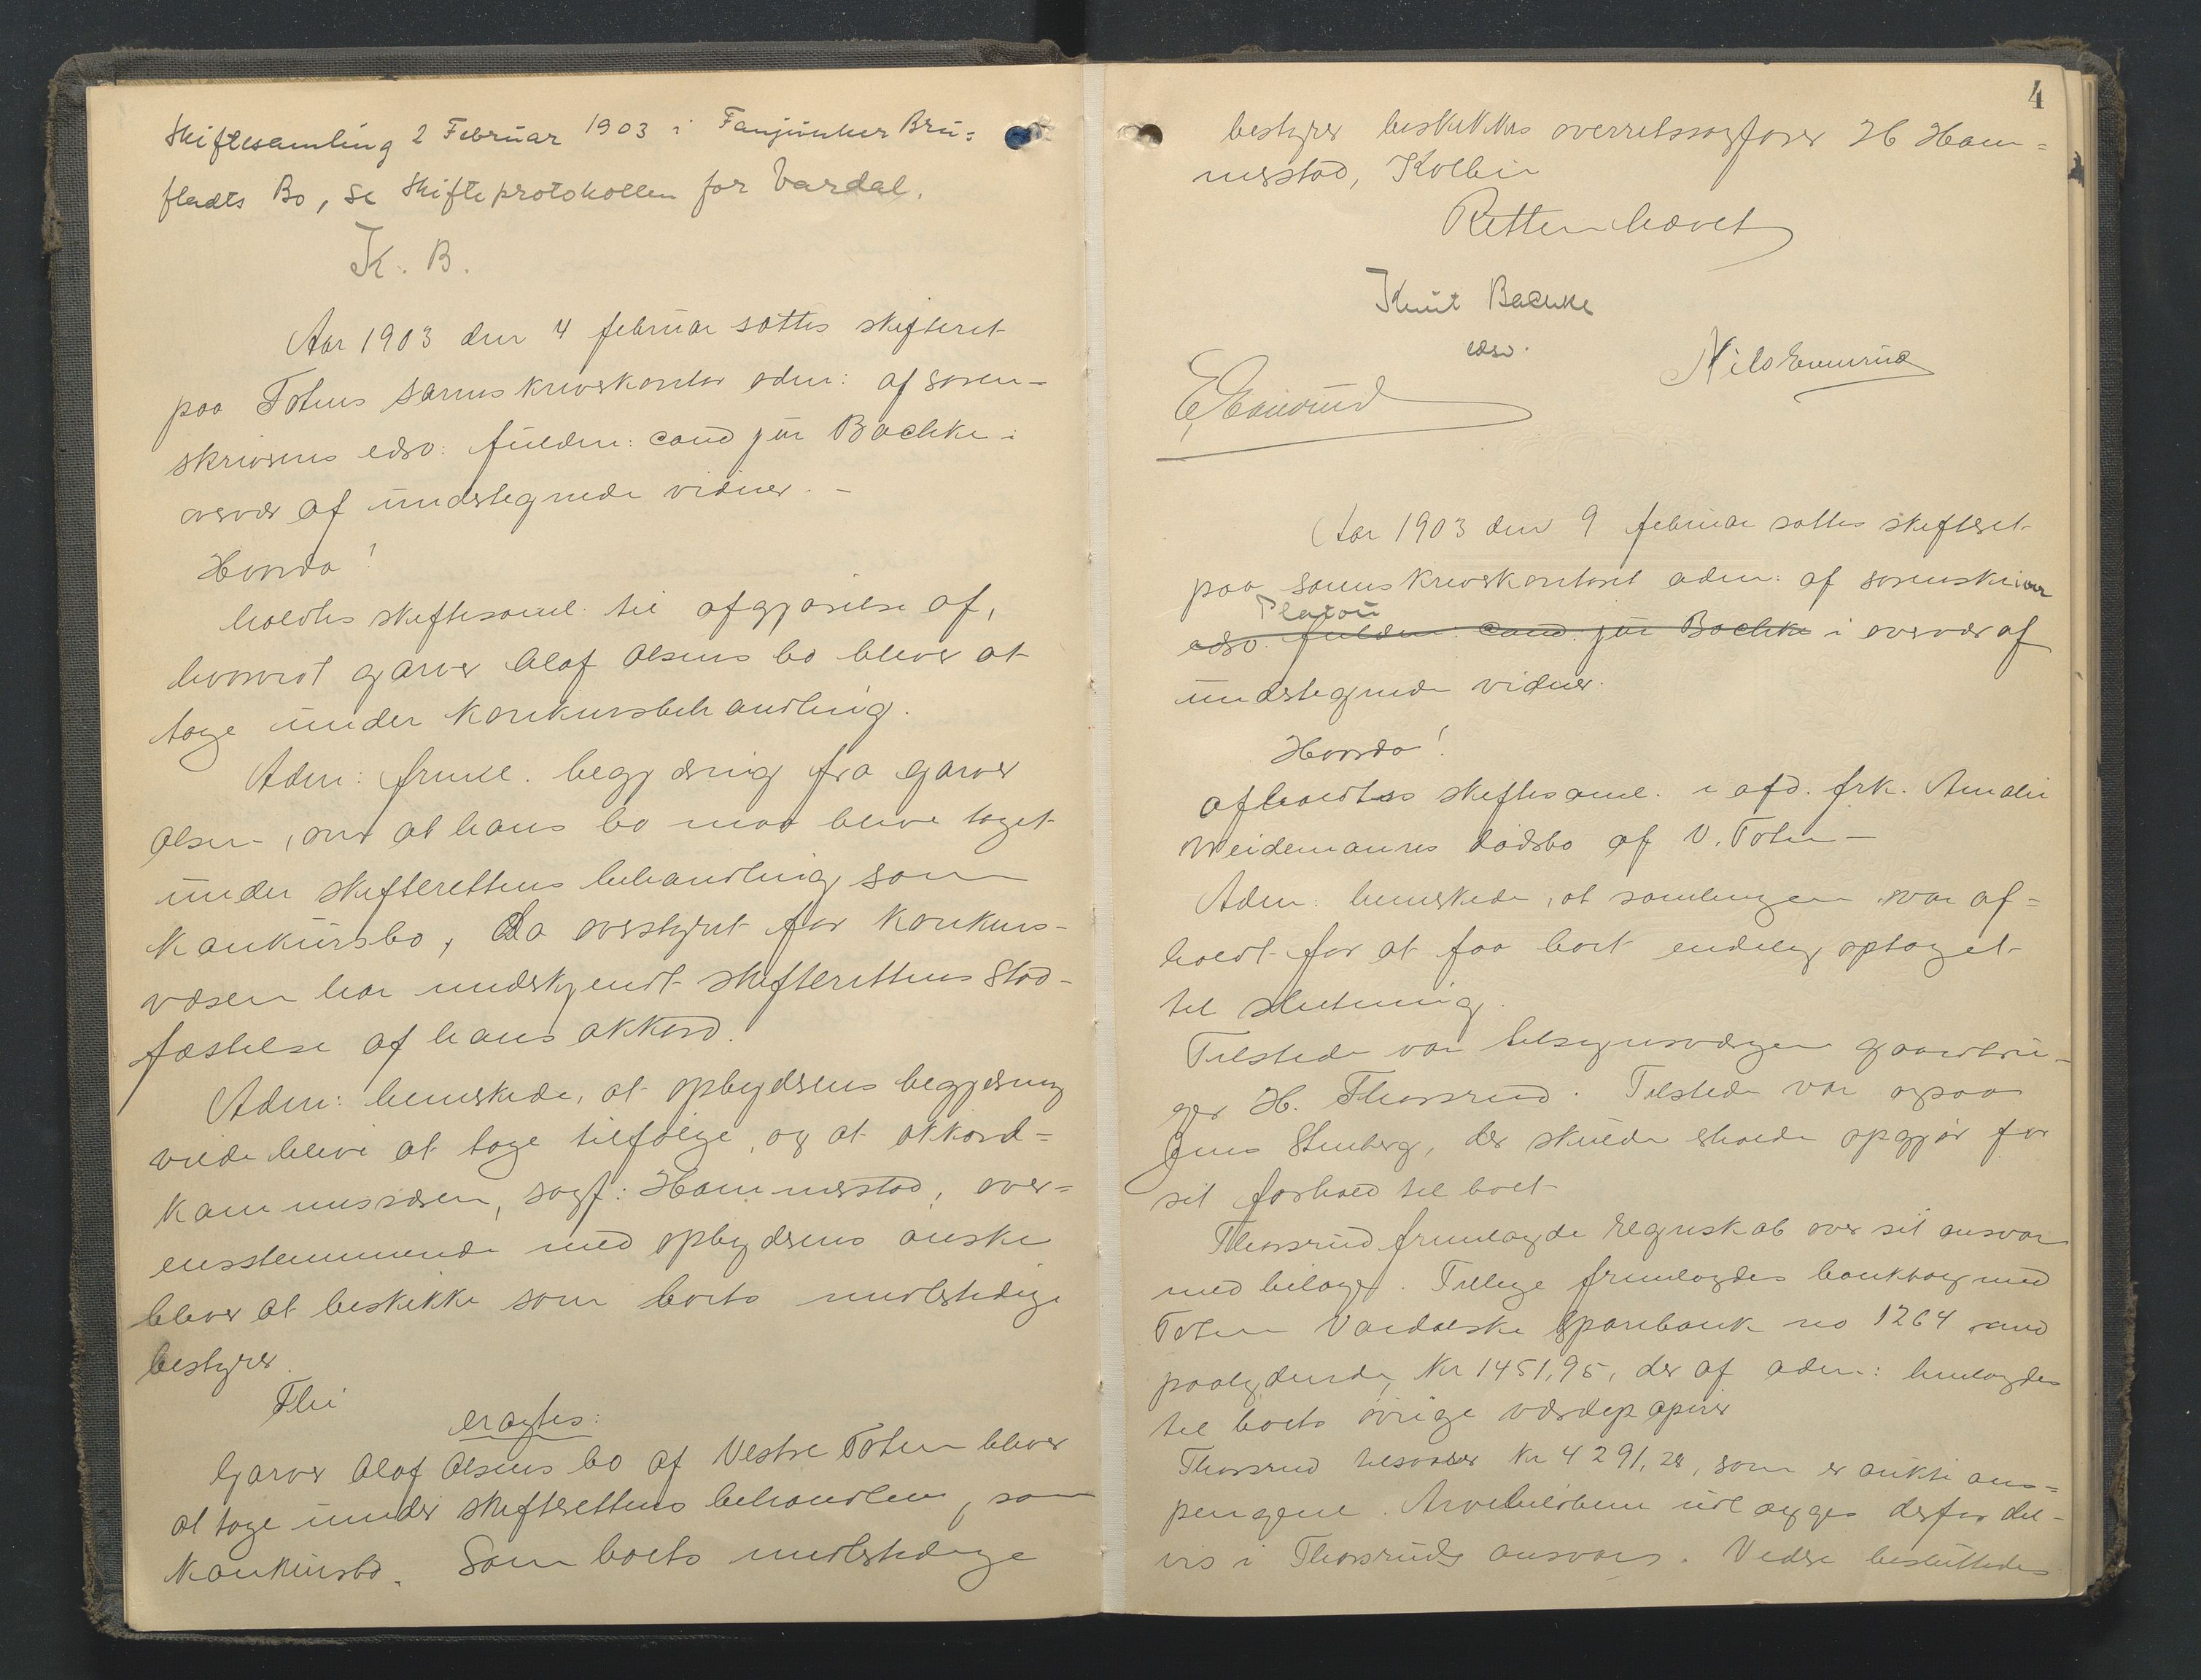 Skiftesamling 2 Februar 1903 i Fanjunker Bru=
fladts Bo, se Skifteprotokollen for Vardal.
K. B.
Aar 1903 den 4 februar sattes skifteret
paa Totens sorenskriverkontor adm: af soren-
skriverens edsv. fuldm: cand jur Bachke i
overvær af undertegnede vidner. -
Hvorda!
holdtes skiftesaml. til afgjørelse af,
hvorvidt garver Olaf Olsens bo bliver at
tage under konkursbehandling.
Adm: freml. begjæring fra garver
Olsen, om at hans bo maa blive taget
under skifterettens behandling som
konkursbo, da overstyret for konkurs-
væsen har underkjendt skifterettens Stad-
fæstelse af hans akkord.
Adm: bemerkede, at opbyderens begjæring
vilde blive at tage tilfølge, og at akkord=
kommissæren, sagf: Hammerstad, over=
ensstemmende med opbyderens ønske
bliver at beskikke som boets midlertidige
bestyrer.
Thi
eragtes:
Garver Olaf Olsens bo af Vestre Toten bliver
at tage under skifterettens behandling som
konkursbo. Som boets midlertidige
4
bestyrer beskikkes overretssagfører H Ham=
merstad, Kolbu
Retten hævet
Knut Bachke
edsv.
Nils Evenrud
E. Evenrud
Aar 1903 den 9 februar sattes skifteret
paa sorenskriverkontoret adm: af sorenskriver
Platou
edsv. fuldm. cand. jur Bachke i overvær af
undertegnede vidner.
Hvorda!
afholdtes skiftesaml. i afd. frk. Amalie
Weidemanns dødsbo af V. Toten -
Adm: bemerkede, at samlingen var af=
holdt for at faa boet endelig optaget
til slutning.
Tilstede var tilsynsværgen gaardbru-
ger H. Thorsrud. Tilstede var ogsaa
Jens Stenberg, der skulde erholde opgjør for
sit forhold til boet
Thorsrud fremlagde regnskab over sit ansvar
med bilager. Tillige fremlagdes bankbog med
Toten Vardalske Sparebank no 1264
paalydende Kr 1451,95, der af adm: henlagdes
til boets øvrige værdepapirer
Thorsrud tilsvarer Kr 4291,28, som er auktions=
pengene. Arvebeløbene udlægges derfor del-
vis i Thorsruds ansvar. Videre besluttedes